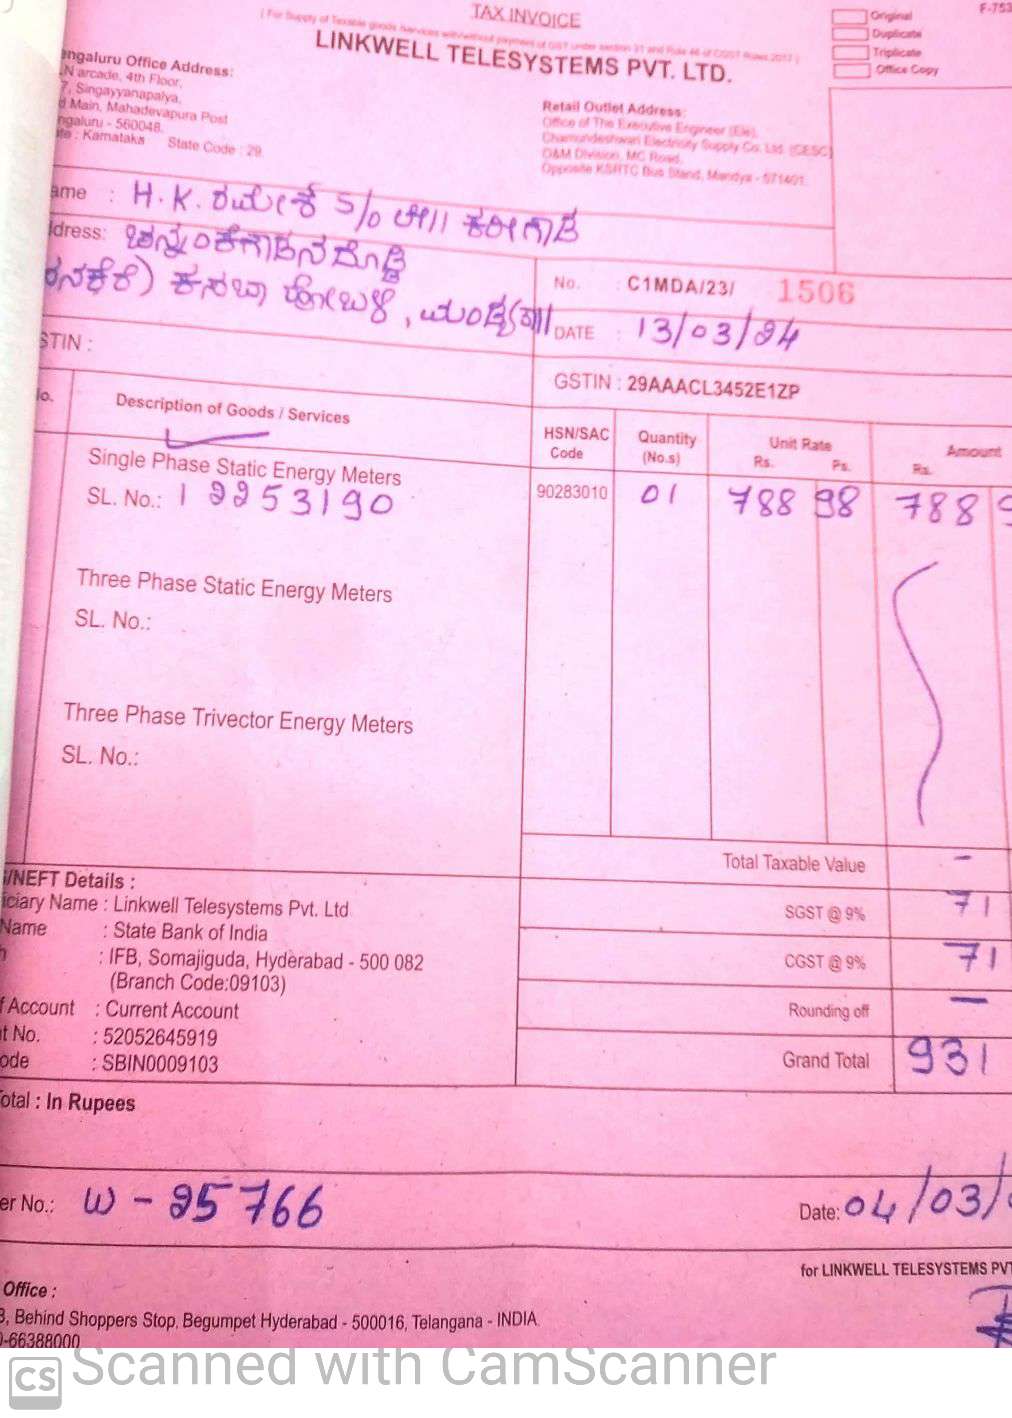 TAX INVOICE
( For Supply of Taxable goods /services with/without payment of GST under section 31 and Rule 46 of CGST Rules 2017 )
LINKWELL TELESYSTEMS PVT. LTD.
Original
Duplicate
Triplicate
Office Copy
F-753
engaluru Office Address:
N arcade, 4th Floor,
7, Singayyanapalya,
d Main, Mahadevapura Post
ngaluru - 560048.
ate : Karnataka State Code : 29
Retail Outlet Address
Office of The Executive Engineer (Ele),
Chamundeshwari Electricity Supply Co. Ltd. (CESC)
O&M Division, MC Road,
Opposite KSRTC Bus Stand, Mandya - 571401.
ame : H.K. ರಮೇಶ್ S/o ಲೇ|| ಕರೀಗೌಡ
ddress:
ಕಸಬಾ ಹೋಬಳಿ, ಮಂಡ್ಯ(ತಾ||
No. : C1MDA/23/ 1506
DATE : 13/03/24
STIN :
GSTIN : 29AAACL3452E1ZP
No. Description of Goods / Services HSN/SAC Code Quantity (No.s) Unit Rate Rs. Ps. Amount Rs.
Single Phase Static Energy Meters
SL. No.: 12253190 90283010 01 788 98 788 9
Three Phase Static Energy Meters
SL. No.:
Three Phase Trivector Energy Meters
SL. No.:
Total Taxable Value -
SGST @ 9% 71
CGST @ 9% 71
Rounding off -
Grand Total 931
/NEFT Details :
iciary Name : Linkwell Telesystems Pvt. Ltd
Name : State Bank of India
h : IFB, Somajiguda, Hyderabad - 500 082
(Branch Code:09103)
f Account : Current Account
t No. : 52052645919
ode : SBIN0009103
otal : In Rupees
er No.: W - 25766 Date: 04/03/
for LINKWELL TELESYSTEMS PVT
Office :
3, Behind Shoppers Stop, Begumpet Hyderabad - 500016, Telangana - INDIA.
0-66388000
CS Scanned with CamScanner